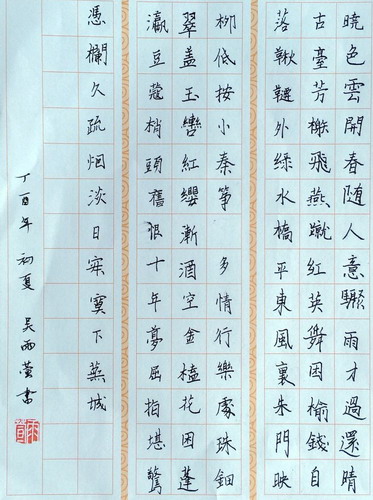 曉色雲開春随人意驟雨才過還晴
古臺芳榭飛燕蹴紅英舞困榆錢自
落鞦韆外緑水橋平東風裏朱門映
柳低按小秦箏 多情行樂處珠鈿
翠盖玉轡紅纓漸酒空金榼花困蓬
瀛豆蔻梢頭舊恨十年夢屈指堪驚
憑欄久疏烟淡日寂寞下蕪城
丁酉年初夏 吴雨萱書